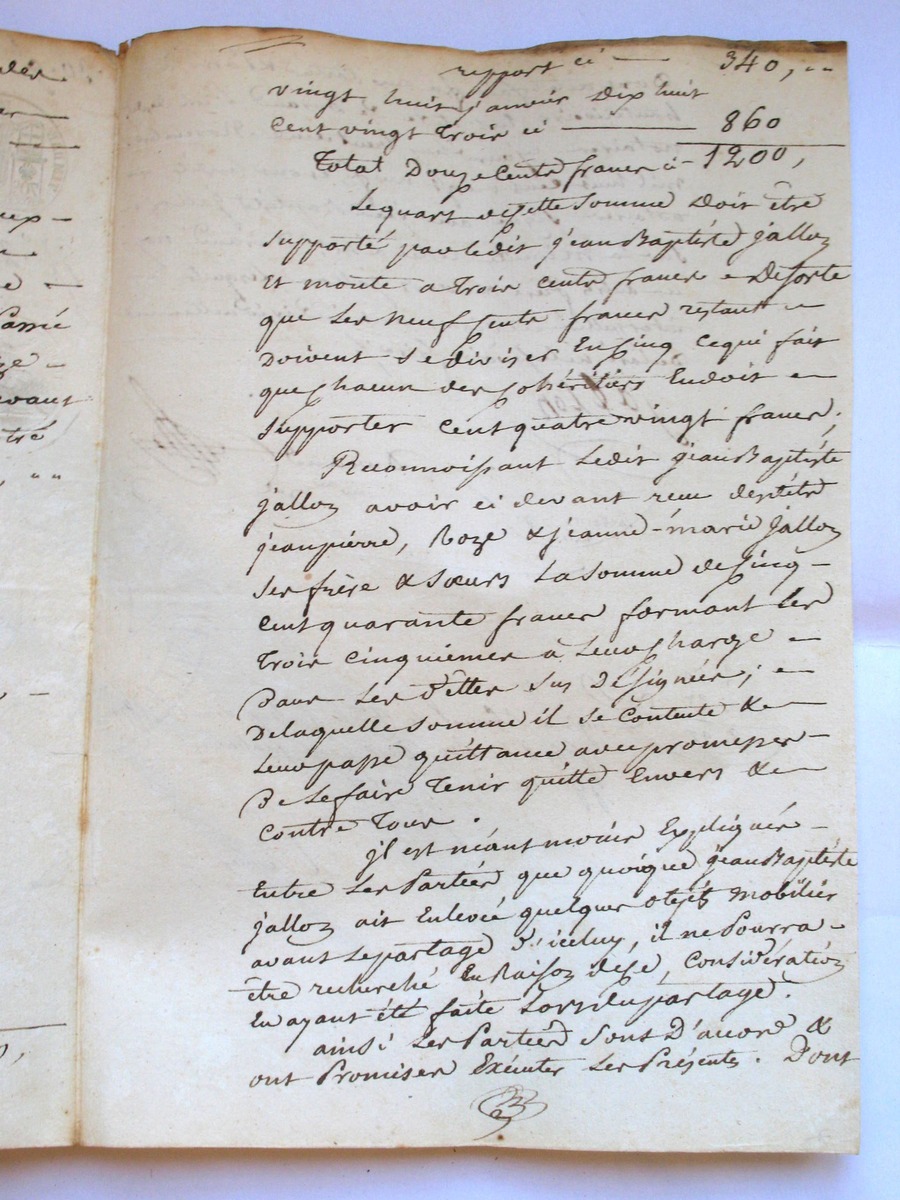 rapport ci — 340, ,,
vingt huit janvier Dix huit
Cent vingt Trois ci — 860
Total Douze Cents francs ci - 1200,
Le quart de cette Somme Doit être
Supporté par ledit Jean Baptiste Jalloz
Et monte a Trois Cents francs = De sorte
que Les Neuf Cents francs restant =
Doivent se diviser En Cinq ce qui fait
que Chacun des Cohéritiers En doit =
Supporter Cent quatre vingt francs;
Reconnoissant Ledit Jean Baptiste
Jalloz avoir ci devant recu desdits
Jean pierre, Roze & Jeanne-marie Jalloz
Ses frère & Sœurs La Somme de Cinq -
Cent quarante francs formant Les
Trois Cinquièmes à Leur Charge =
Dans Les Dettes Sus Désignées; =
De laquelle Somme il Se Contente &
Leur passe quittance avec promesses -
De Les faire Tenir quitte Envers &
Contre Tous .
Jl est néant moins Expliqués -
Entre Les Parties que quoique Jean Baptiste
Jalloz ait Enlevée quelques objets Mobilier
avant Le partage D'iceluy, il ne Pourra -
être recherché En Raison de ce, Considération
En ayant été faite Lors du partage.
ainsi Les Parties Sont D'accord &
ont Promises Exécuter Les Présentes. Dont
ant
vant
tré